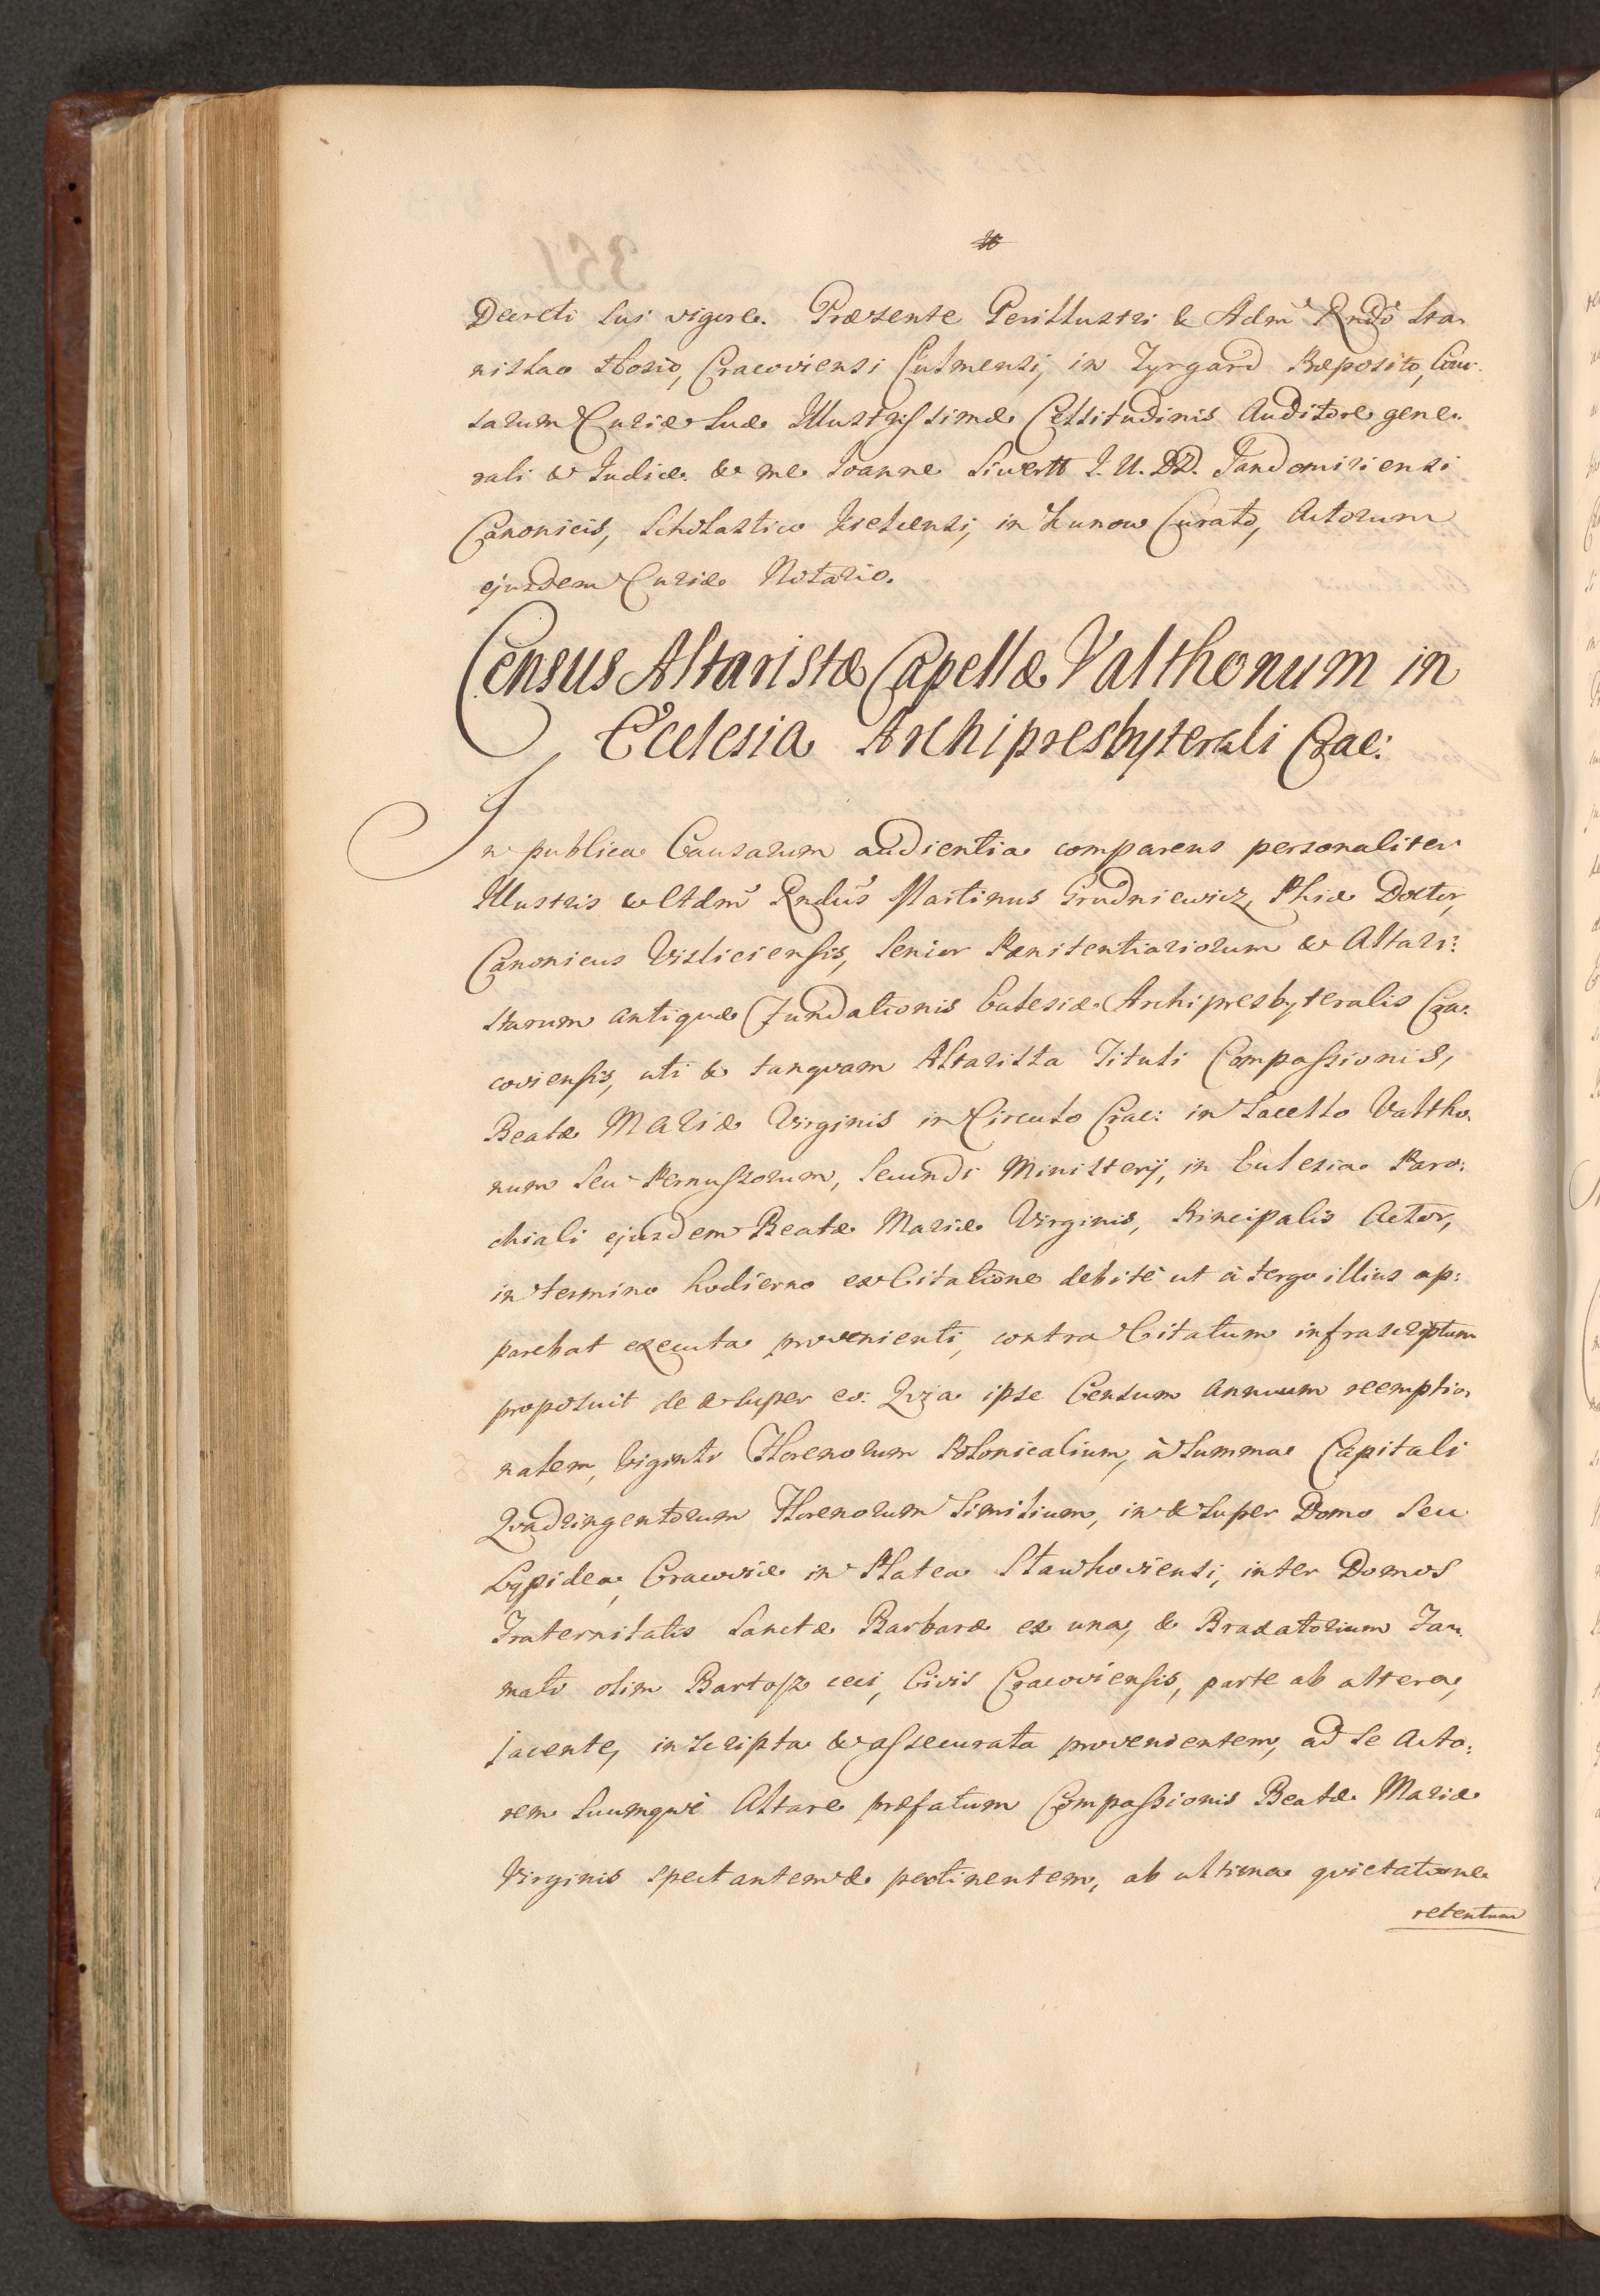 Decreti sui vigore. Præsente Perillustri & Adm Rndo Sta-
nislao Hosio, Cracoviensi Culmensi, in Zyrgard Præposito, Cau-
sarum Curiæ Suæ Illustrissimæ Celsitudinis Auditore gene-
rali & Judice & me Joanne Siwertt J. U. DD. Sandomiriensi
Canonicis, Scholastico Kielcensi, in Kunow Curato, Actorum
ejusdem Curiæ Notario.
Census Altaristæ Capellæ Valthonum in
Ecclesia Archipresbyterali Crac:
In publica Causarum audientia comparens personaliter
Illustris & Adm Rndus Martinus Grudniewicz, Phiæ Doctor,
Canonicus Visliciensis, Senior Pænitentiariorum & Altari:
starum antiquæ Fundationis Ecclesiæ Archipresbyteralis Cra:
coviensis, uti & tanquam Altarista Tituli Compassionis,
Beatæ Mariæ Virginis in Circulo Crac: in Sacello Valtho-
num seu Pernussorum, secundi Ministerij, in Ecclesia Paro:
chiali ejusdem Beatæ Mariæ Virginis, Principalis Actor,
in termino hodierno ex Citatione debitè ut à tergo illius ap:
parebat executa provenienti, contra Citatum infrascriptum
proposuit de & super eo: Quia ipse Censum annuum reemptio-
nalem, viginti Florenorum Polonicalium, à Summa Capitali
Quadringentorum Florenorum similium, in & super Domo seu
Lapidea, Cracoviæ in Platea Slawkoviensi, inter Domos
Fraternitatis Sanctæ Barbaræ ex una, & Braxatorium Fa-
mati olim Bartosz ceci, Civis Cracoviensis, parte ab altera,
jacente, inscripta & assecurata provenientem, ad se Acto:
rem suumquè Altare præfatum Compassionis Beatæ Mariæ
Virginis spectantem & pertinentem, ab ultima quietatione
retentum